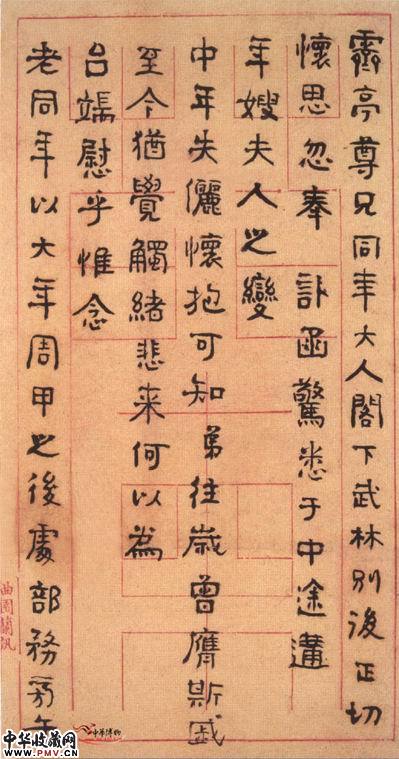 霽亭尊兄同年大人閣下武林別後正切
懷思忽奉 訃函驚悉于中途遘
年嫂夫人之變
中年失儷懷抱可知弟往歲曾膺斯戚
至今猶覺觸緒悲来何以為
台端慰乎惟念
老同年以大年周甲之後處部務
曲園
中華博物
中华收藏网
www.PMV.CN